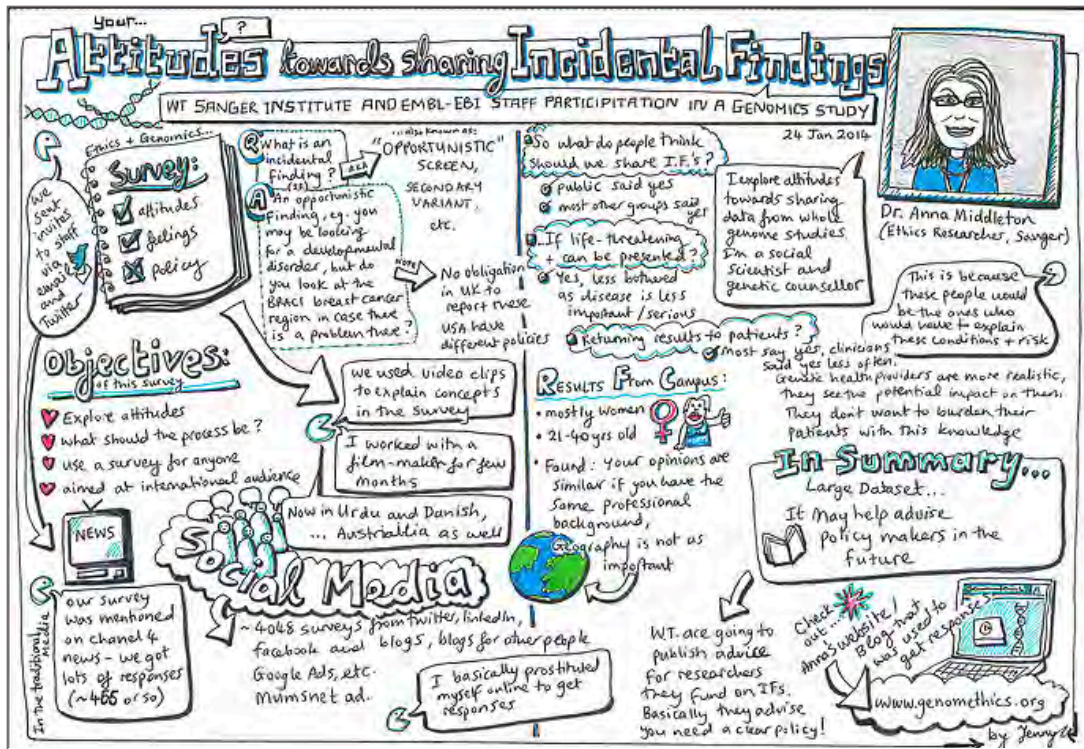 your...
?
Attitudes towards sharing Incidental Findings
WT SANGER INSTITUTE AND EMBL-EBI STAFF PARTICIPITATION IN A GENOMICS STUDY
24 Jan 2014
we
sent
invites
to staff
via
email
and
Twitter
Ethics + Genomics...
Survey:
attitudes
feelings
policy
Q
What is an
incidental
finding?
(IF)
AKA
...also known as:
"OPPORTUNISTIC"
SCREEN,
SECONDARY
VARIANT,
etc.
A
An opportunistic
finding, eg. you
may be looking
for a developmental
disorder, but do
you look at the
BRAC1 breast cancer
region in case there
is a problem there?
NOTE
No obligation
in UK to
report these
USA have
different policies
Objectives:
of this survey
Explore attitudes
what should the process be?
use a survey for anyone
aimed at international audience
we used video clips
to explain concepts
in the survey
I worked with a
film-maker for few
months
Now in Urdu and Danish,
... Austriallia as well
NEWS
In the traditional
media
our survey
was mentioned
on chanel 4
news - we got
lots of responses
(~ 466 or so)
Social Media
~4048 surveys from twitter, linkedIn,
facebook and blogs, blogs for other people
Google Ads, etc.
Mumsnet ad.
I basically prostituted
myself online to get
responses
So what do people think
should we share I.F.'s?
public said yes
most other groups said
yes
...If life-threatening
+ can be presented?
Yes, less bothered
as disease is less
important/serious
Returning results to patients?
most say yes, clinicians
said yes less often.
Genetic health providers are more realistic,
they see the potential impact on them.
They don't want to burden their
patients with this knowledge
This is because
these people would
be the ones who
would have to explain
these conditions + risk
I explore attitudes
towards sharing
data from whole
genome studies
I'm a social
scientist and
genetic counsellor
Dr. Anna Middleton
(Ethics Researcher, Sanger)
Results From Campus:
mostly women
21-40 yrs old
Found: your opinions are
similar if you have the
same professional
background,
Geography is not as
important
In Summary...
Large Dataset...
It may help advise
policy makers in the
future
W.T. are going to
publish advice
for researchers
they fund on IFs.
Basically they advise
you need a clear policy!
Check
out...
Anna's website!
Blog-not
was used to
get responses
www.genomethics.org
by Jenny